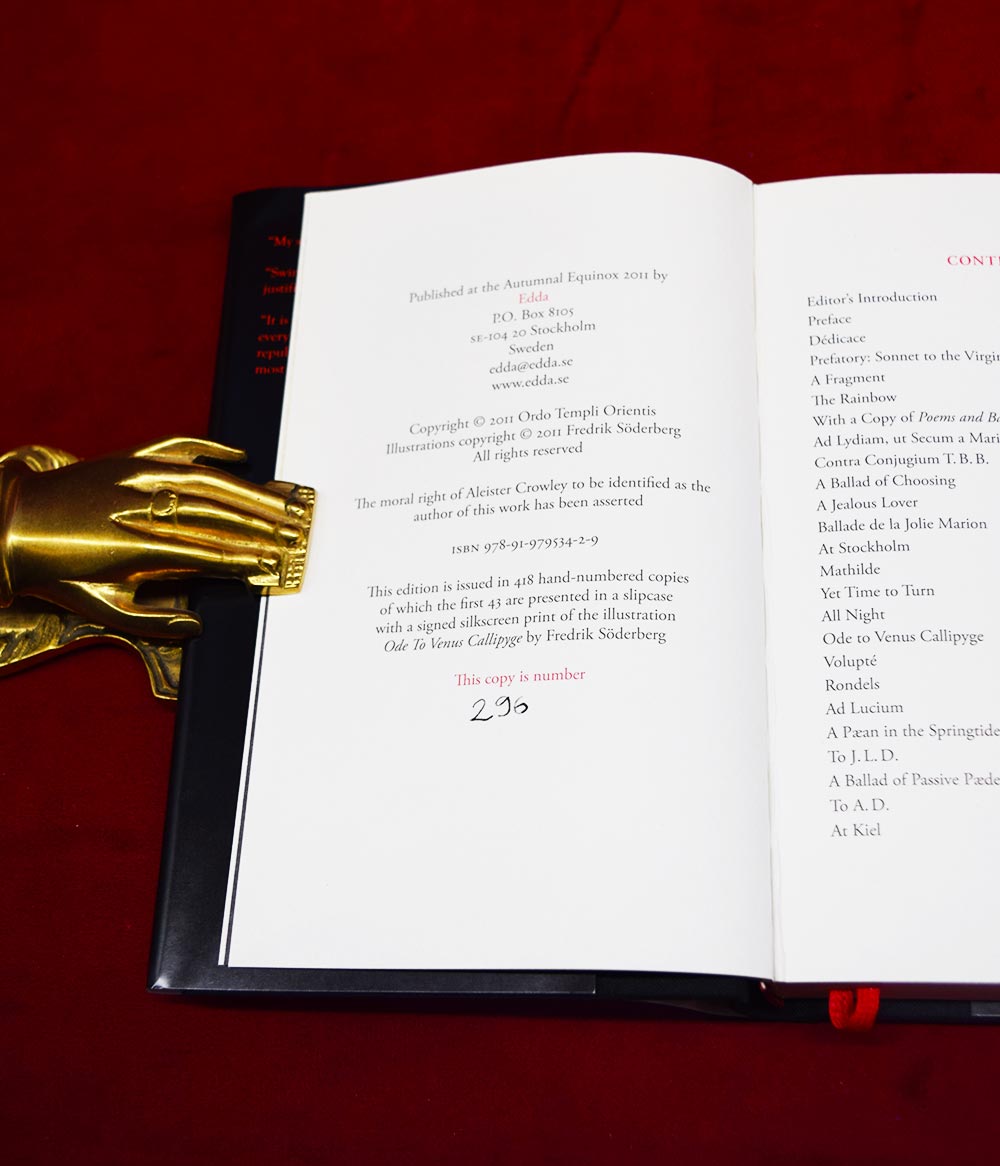 "My
"Swin
justifi
"It is
every
repub
most
Published at the Autumnal Equinox 2011 by
Edda
P.O. Box 8105
SE-104 20 Stockholm
Sweden
edda@edda.se
www.edda.se
Copyright © 2011 Ordo Templi Orientis
Illustrations copyright © 2011 Fredrik Söderberg
All rights reserved
The moral right of Aleister Crowley to be identified as the
author of this work has been asserted
ISBN 978-91-979534-2-9
This edition is issued in 418 hand-numbered copies
of which the first 43 are presented in a slipcase
with a signed silkscreen print of the illustration
Ode To Venus Callipyge by Fredrik Söderberg
This copy is number
296
CONT
Editor's Introduction
Preface
Dédicace
Prefatory: Sonnet to the Virgin
A Fragment
The Rainbow
With a Copy of Poems and Ba
Ad Lydiam, ut Secum a Mari
Contra Conjugium T. B. B.
A Ballad of Choosing
A Jealous Lover
Ballade de la Jolie Marion
At Stockholm
Mathilde
Yet Time to Turn
All Night
Ode to Venus Callipyge
Volupté
Rondels
Ad Lucium
A Pæan in the Springtide
To J. L. D.
A Ballad of Passive Pæde
To A. D.
At Kiel